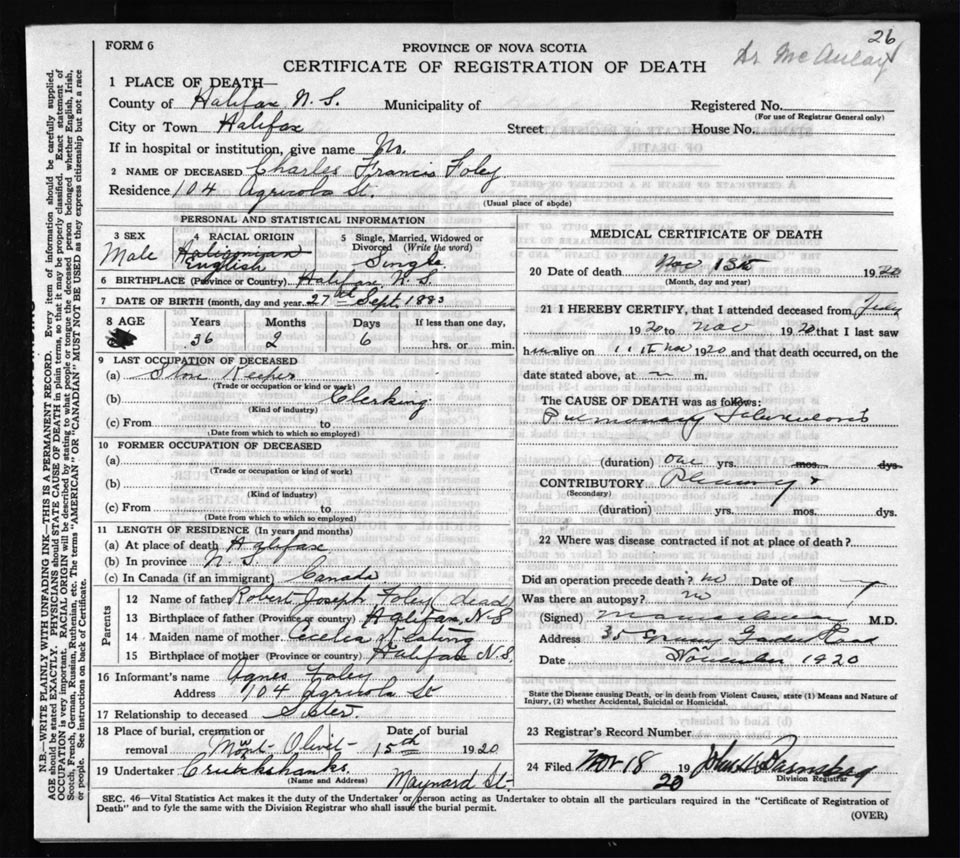 26
Dr McAulay
FORM 6
PROVINCE OF NOVA SCOTIA
CERTIFICATE OF REGISTRATION OF DEATH
1 PLACE OF DEATH—
County of Halifax N.S. Municipality of
Registered No.
(For use of Registrar General only)
City or Town Halifax Street House No.
If in hospital or institution, give name
2 NAME OF DECEASED Charles Francis Foley
Residence 104 Agricola St.
(Usual place of abode)
PERSONAL AND STATISTICAL INFORMATION
3 SEX
Male
4 RACIAL ORIGIN
Haligonian
English
5 Single, Married, Widowed or
Divorced (Write the word)
Single
6 BIRTHPLACE (Province or Country) Halifax N.S.
7 DATE OF BIRTH (month, day and year) 27th Sept. 1883
8 AGE Years Months Days If less than one day,
36 2 6 hrs. or min.
9 LAST OCCUPATION OF DECEASED
(a) Store Keeper
(Trade or occupation or kind of work)
(b) Clerking
(Kind of industry)
(c) From to
(Date from which to which so employed)
10 FORMER OCCUPATION OF DECEASED
(a)
(Trade or occupation or kind of work)
(b)
(Kind of industry)
(c) From to
(Date from which to which so employed)
11 LENGTH OF RESIDENCE (In years and months)
(a) At place of death Halifax
(b) In province N.S.
(c) In Canada (if an immigrant) Canada
Parents
12 Name of father Robert Joseph Foley (dead)
13 Birthplace of father (Province or country) Halifax, N S
14 Maiden name of mother Cecelia
15 Birthplace of mother (Province or Country) Halifax N S
16 Informant's name Agnes Foley
Address 104 Agricola St
17 Relationship to deceased Sister
18 Place of burial, cremation or
removal Mount Olivet
Date of burial
15th 1920
19 Undertaker Cruickshanks
(Name and Address)
Maynard St.
MEDICAL CERTIFICATE OF DEATH
20 Date of death Nov 13th 1920
(Month, day and year)
21 I HEREBY CERTIFY, that I attended deceased from July
1920 to Nov 1920 that I last saw
him alive on 11th Nov 1920 and that death occurred, on the
date stated above, at m.
The CAUSE OF DEATH was as follows:
Pulmonary Tuberculosis
(duration) One yrs. mos. dys.
CONTRIBUTORY Pleurisy
(Secondary)
(duration) yrs. mos. dys.
22 Where was disease contracted if not at place of death?
Did an operation precede death? no Date of
Was there an autopsy? no
(Signed) M.D.
Address 35 Spring Garden Road
Date November 1920
State the Disease causing Death, or in death from Violent Causes, state (1) Means and Nature of
Injury, (2) whether Accidental, Suicidal or Homicidal.
23 Registrar's Record Number
24 Filed Nov 18 1920 John H Barnstead
Division Registrar
SEC. 46—Vital Statistics Act makes it the duty of the Undertaker or person acting as Undertaker to obtain all the particulars required in the "Certificate of Registration of
Death" and to fyle the same with the Division Registrar who shall issue the burial permit.
(OVER)
N.B.—WRITE PLAINLY WITH UNFADING INK—THIS IS A PERMANENT RECORD. Every item of information should be carefully supplied.
AGE should be stated EXACTLY. PHYSICIANS should STATE CAUSE OF DEATH in plain terms, so that it may be properly classified. Exact statement of
OCCUPATION is very important. RACIAL ORIGIN will be described by stating to what people or tongue the deceased person belonged whether English, Irish,
Scotch, French, German, Russian, Ruthenian, etc. The terms "AMERICAN" OR "CANADIAN" MUST NOT BE USED as they express citizenship but not a race
or people. See instructions on back of Certificate.